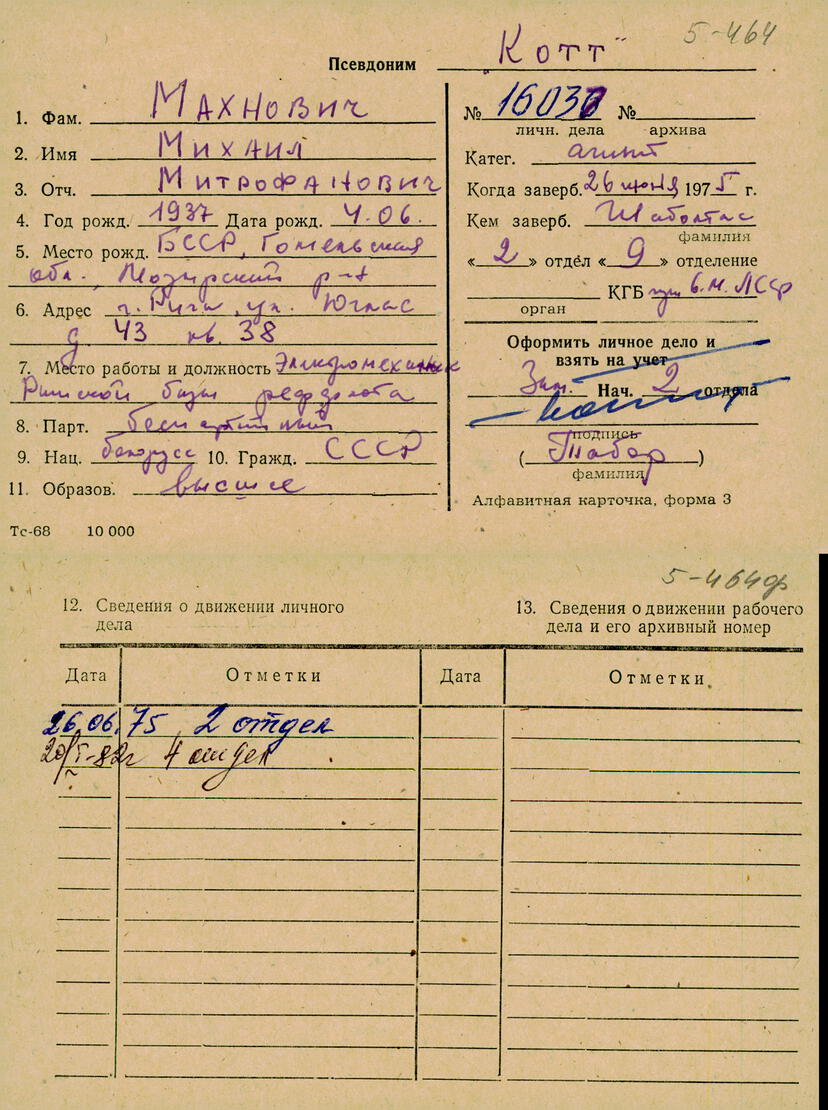 5-464
Псевдоним „Котт"
1. Фам. Махнович
2. Имя Михаил
3. Отч. Митрофанович
4. Год рожд. 1937 Дата рожд. 4.06.
5. Место рожд. БССР, Гомельская
обл., Мозырский р-н
6. Адрес г. Рига, ул. Юглас
д 43 кв. 38
7. Место работы и должность Электромеханик
Рижской базы рефрлота
8. Парт. беспартийный
9. Нац. белорусс 10. Гражд. СССР
11. Образов. высшее
Тс-68 10 000
№ 16037 № 
личн. дела архива
Катег. агент
Когда заверб. 26 июня 1975 г.
Кем заверб. Шаболтас
фамилия
« 2 » отдел « 9 » отделение
КГБ при С.М. ЛССР
орган
Оформить личное дело и
взять на учет
Зам. Нач. 2 отдела
подпись
( Табор )
фамилия
Алфавитная карточка, форма 3
5-464др
12. Сведения о движении личного
дела
13. Сведения о движении рабочего
дела и его архивный номер
Дата Отметки Дата Отметки
26.06.75 2 отдел
20/I-82г 4 отдел